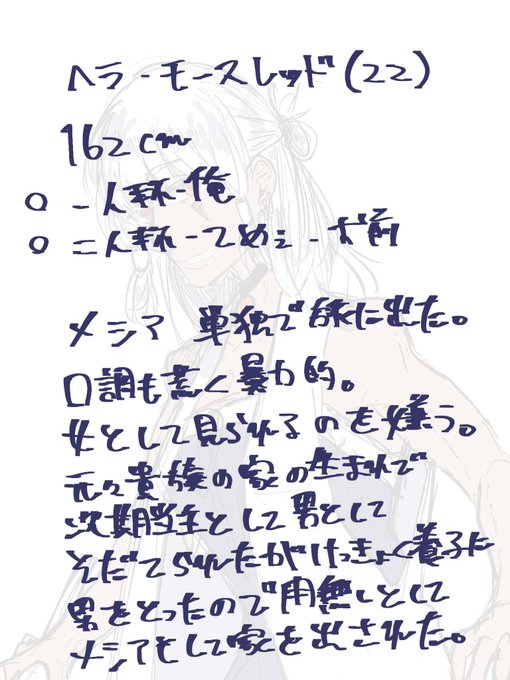 ヘラ・モースレッド(22)
162cm
○一人称-俺
○二人称-てめェ-お前
メシア 単独で旅に出た。
口調も荒く暴力的。
女として見られるのを嫌う。
元々貴族の家の生まれで
次期当主として男として
そだてられたがけっきょく養子に
男をとったので用無しとして
メシアとして家を出された。